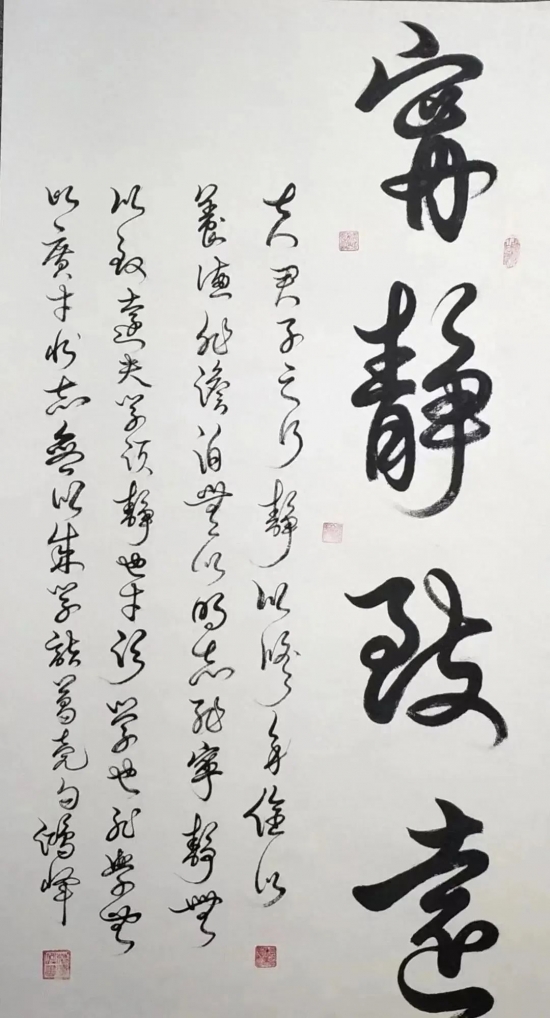 寧靜致遠
夫君子之行靜以修身儉以
養德非淡泊無以明志非寧靜無
以致遠夫學須靜也才須學也非學無
以廣才非志無以成學諸葛亮句鴻峰